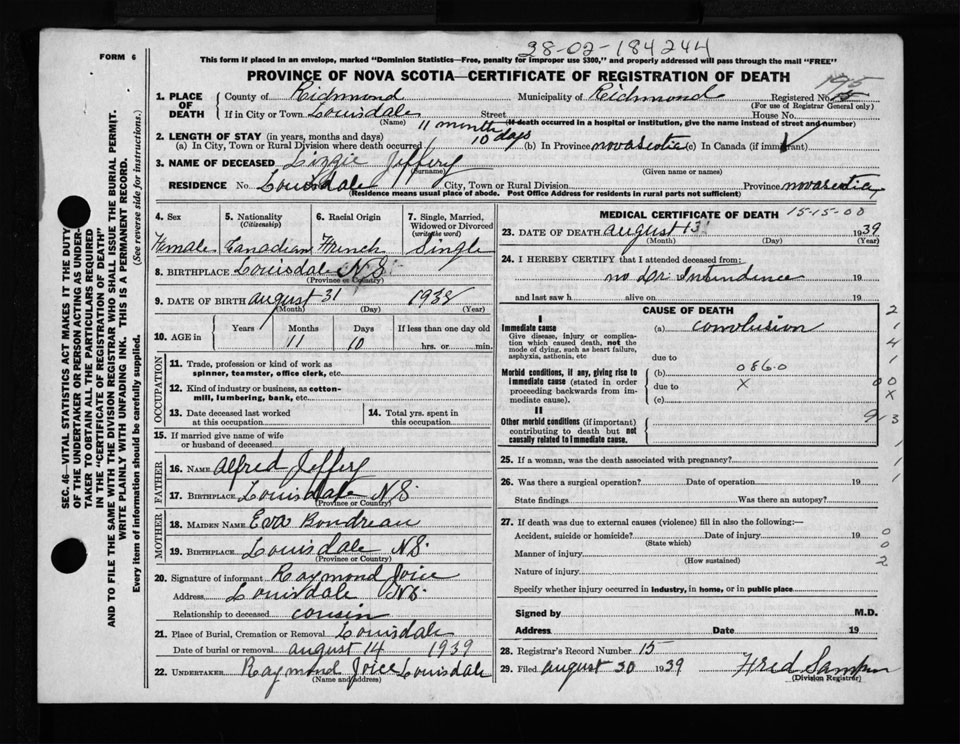 28-02-184244
FORM 6
This form if placed in an envelope, marked "Dominion Statistics—Free, penalty for improper use $300," and properly addressed will pass through the mail "FREE"
PROVINCE OF NOVA SCOTIA—CERTIFICATE OF REGISTRATION OF DEATH
1. PLACE OF DEATH County of Richmond Municipality of Richmond Registered No. 15
(For use of Registrar General only)
If in City or Town Louisdale Street House No.
(Name) (If death occurred in a hospital or institution, give the name instead of street and number)
2. LENGTH OF STAY (in years, months and days) 11 month 10 days
(a) In City, Town or Rural Division where death occurred (b) In Province novascotia (c) In Canada (if immigrant)
3. NAME OF DECEASED Lizzie Jeffery
(Surname) (Given name or names)
RESIDENCE No. Louisdale City, Town or Rural Division Province novascotia
(Residence means usual place of abode. Post Office Address for residents in rural parts not sufficient)
4. Sex Female
5. Nationality (Citizenship) Canadian
6. Racial Origin French
7. Single, Married, Widowed or Divorced (write the word) Single
8. BIRTHPLACE Louisdale N.S.
(Province or Country)
9. DATE OF BIRTH august 31 1938
(Month) (Day) (Year)
10. AGE in Years Months 11 Days 10 If less than one day old hrs. or min.
OCCUPATION
11. Trade, profession or kind of work as spinner, teamster, office clerk, etc.
12. Kind of industry or business, as cotton-mill, lumbering, bank, etc.
13. Date deceased last worked at this occupation
14. Total yrs. spent in this occupation.
15. If married give name of wife or husband of deceased
FATHER
16. NAME Alfred Jeffery
17. BIRTHPLACE Louisdale N.S.
(Province or Country)
MOTHER
18. MAIDEN NAME Eva Boudreau
19. BIRTHPLACE Louisdale N.S.
(Province or Country)
20. Signature of informant Raymond Joice
Address Louisdale N.S.
Relationship to deceased cousin
21. Place of Burial, Cremation or Removal Louisdale
Date of burial or removal august 14 1939
22. UNDERTAKER Raymond Joice Louisdale
(Name and address)
MEDICAL CERTIFICATE OF DEATH 15-15-00
23. DATE OF DEATH august 13 1939
(Month) (Day) (Year)
24. I HEREBY CERTIFY that I attended deceased from:
no Dr. Intendence 19
and last saw h alive on 19
CAUSE OF DEATH
I
Immediate cause
Give disease, injury or complication which caused death, not the mode of dying, such as heart failure, asphyxia, asthenia, etc
(a) convolusion
due to
Morbid conditions, if any, giving rise to immediate cause (stated in order proceeding backwards from immediate cause).
(b) 086.0
due to X
(c)
II
Other morbid conditions (if important) contributing to death but not causally related to immediate cause.
2
1
4
1
00
X
9-3
1
1
0
0
2
25. If a woman, was the death associated with pregnancy?
26. Was there a surgical operation? Date of operation 19
State findings Was there an autopsy?
27. If death was due to external causes (violence) fill in also the following:—
Accident, suicide or homicide? Date of injury 19
(State which)
Manner of injury
(How sustained)
Nature of injury
Specify whether injury occurred in industry, in home, or in public place
Signed by M.D.
Address Date 19
28. Registrar's Record Number 15
29. Filed august 30 1939 Fred Sampson
(Division Registrar)
SEC. 46—VITAL STATISTICS ACT MAKES IT THE DUTY
OF THE UNDERTAKER OR PERSON ACTING AS UNDER-
TAKER TO OBTAIN ALL THE PARTICULARS REQUIRED
IN THE "CERTIFICATE OF REGISTRATION OF DEATH"
AND TO FILE THE SAME WITH THE DIVISION REGISTRAR WHO SHALL ISSUE THE BURIAL PERMIT.
WRITE PLAINLY WITH UNFADING INK. THIS IS A PERMANENT RECORD.
Every item of information should be carefully supplied. (See reverse side for instructions.)